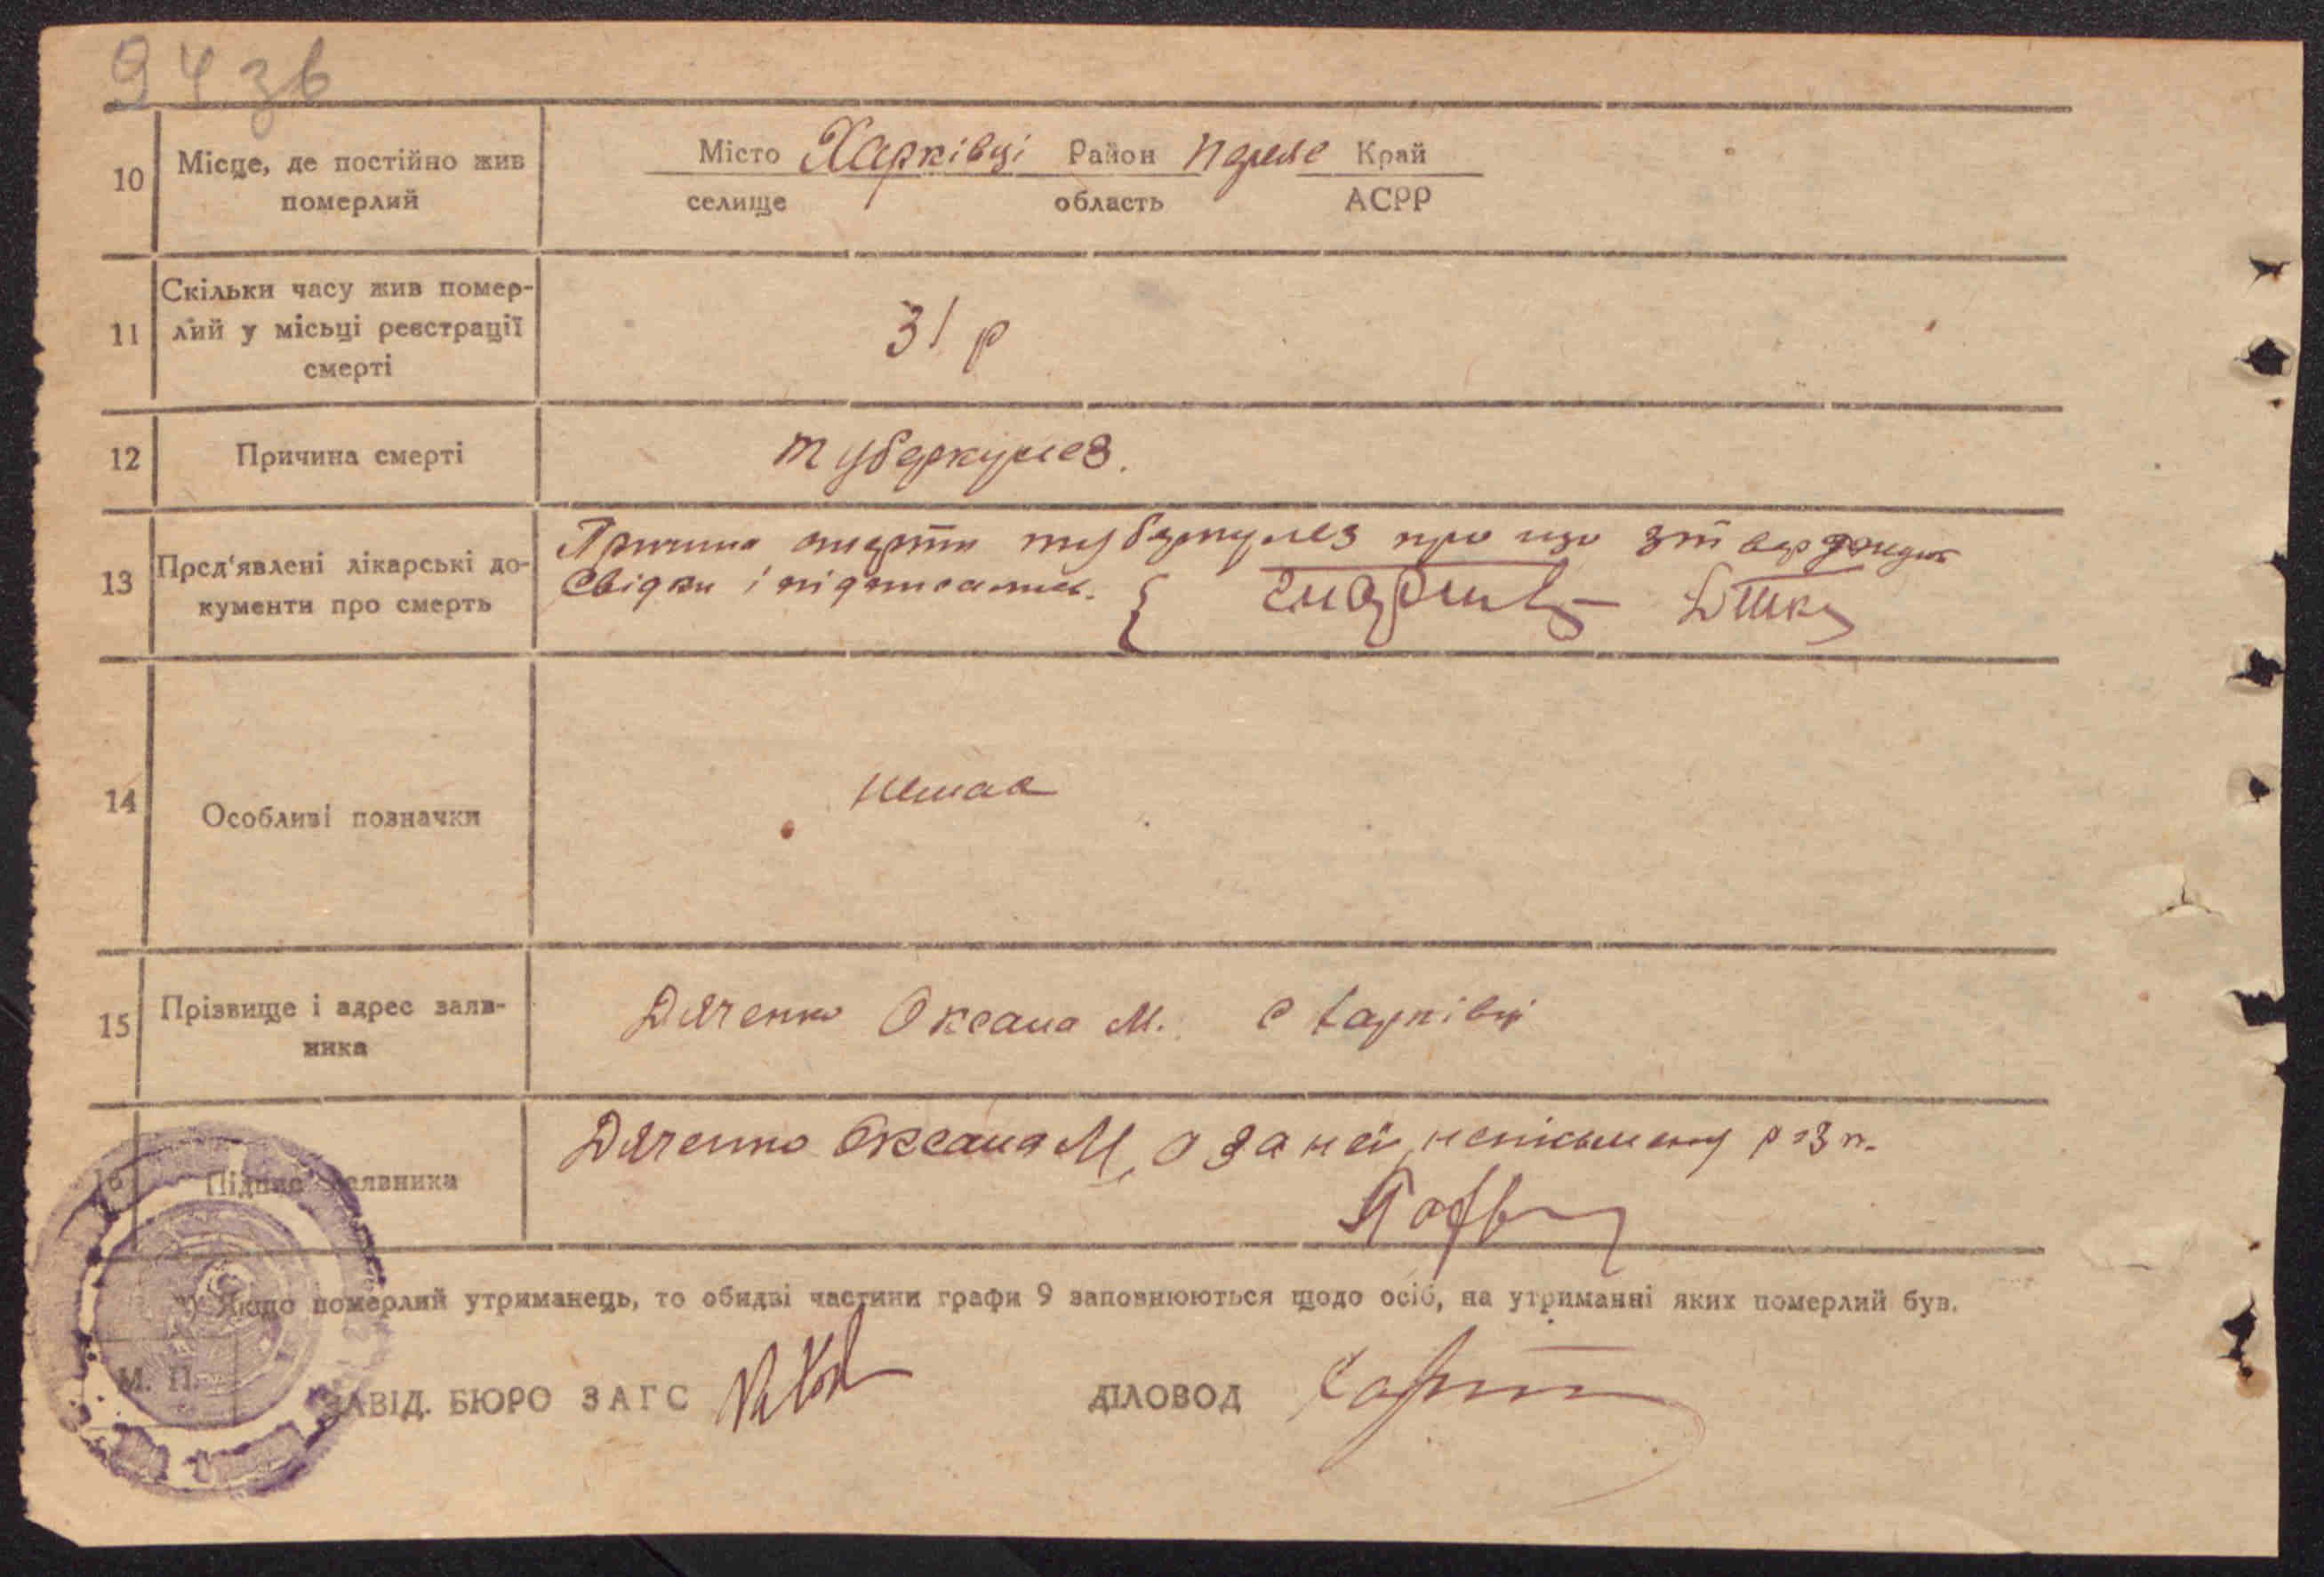 94 зв
10 Місце, де постійно жив померлий
Місто Харківці Район Переяс Край
селище область АСРР
11 Скільки часу жив помер-
лий у місьці реєстрації
смерті
31 р
12 Причина смерті
туберкульоз.
13 Пред'явлені лікарські до-
кументи про смерть
Причина смерти туберкулез про що
свідки і підписались. {
14 Особливі позначки
немає
15 Прізвище і адрес заяв-
ника
Дяченко Оксана М. с Харківці
16 Підпис заявника
Дяченко Оксана М, а за неї неписьмену розп.
*) Якщо померлий утриманець, то обидві частини графи 9 заповнюються щодо осіб, на утриманні яких померлий був.
М. П.
ЗАВІД. БЮРО ЗАГС ДІЛОВОД